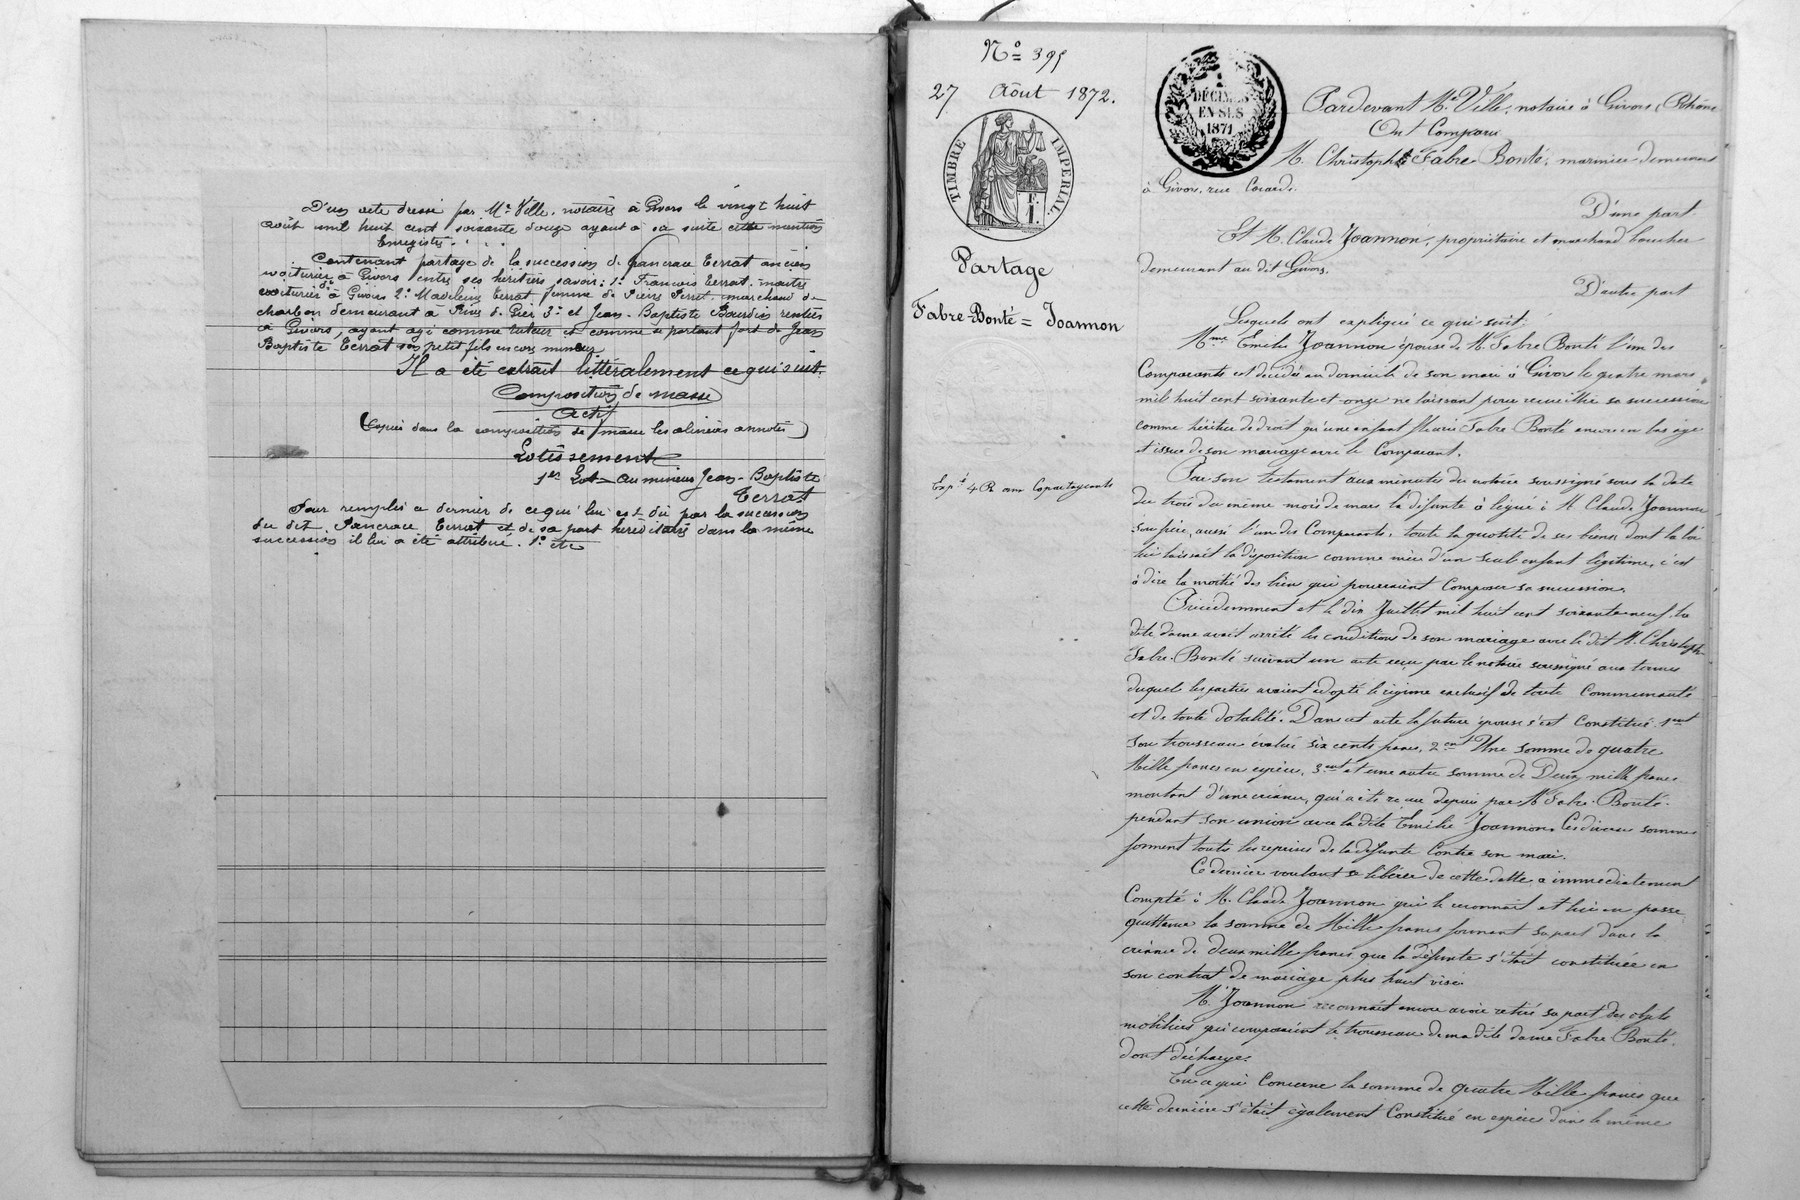 D'un acte dressé par Me Ville, notaire à Givors le vingt huit
août mil huit cent soixante douze ayant à sa suite cette mention
Enregistré.
Contenant partage de la succession de Pancrace Terrat ancien
voiturier à Givors entre ses héritiers savoir: 1° François Terrat, maître
voiturier à Givors 2° Madeleine Terrat, femme de Pierre Perret, marchand de
charbon demeurant à Rive de Gier 3° et Jean-Baptiste Bourdin rentier
à Givors, ayant agi comme tuteur et comme se portant fort de Jean
Baptiste Terrat son petit fils encore mineur
Il a été extrait littéralement ce qui suit.
Composition de masse
Actif
(Copier dans la composition de masse les alinéas annotés)
Lotissement
1er Lot - au mineur Jean-Baptiste
Terrat
Pour remplir ce dernier de ce qui lui est dû par la succession
du dit Pancrace Terrat et de sa part héréditaire dans la même
succession il lui a été attribué. 1° etc
N° 395
27 Août 1872.
TIMBRE IMPERIAL
Partage
Fabre-Bonté = Joannon
Expé 4 R aux Copartageants
2 DÉCIMES
EN SUS
1871
Pardevant Me Ville, notaire à Givors, Rhône
Ont Comparu
M. Christophe Fabre-Bonté, marinier demeurant
à Givors, rue
D'une part.
Et M. Claude Joannon, propriétaire et marchand boucher
demeurant au dit Givors.
D'autre part
Lesquels ont expliqué ce qui suit:
Mme Emélie Joannon épouse de M. Fabre Bonté l'un des
Comparants est décédée au domicile de son mari à Givors le quatre mars
mil huit cent soixante et onze ne laissant pour recueillir sa succession
comme héritier de droit qu'une enfant Fabre Bonté encore en bas âge
et issue de son mariage avec le Comparant.
Par son testament aux minutes du notaire soussigné sous la date
du trois du même mois de mars la défunte a légué à M. Claude Joannon
son père, aussi l'un des Comparants, toute la quotité de ses biens dont la loi
lui laissait la disposition comme mère d'un seul enfant légitime, c'est
à dire la moitié des biens qui pourraient Composer sa succession.
Précédemment et le dix Juillet mil huit cent soixante neuf, la
dite dame avait arrêté les conditions de son mariage avec le dit M. Christophe
Fabre-Bonté suivant un acte reçu par le notaire soussigné aux termes
duquel les parties avaient adopté le régime exclusif de toute Communauté
et de toute dotalité. Dans cet acte la future épouse s'est Constitué. 1ent
Son trousseau évalué six cents francs, 2ent Une somme de quatre
Mille francs en espèces, 3ent et une autre somme de Deux mille francs
montant d'une créance, qui a été reçue depuis par M. Fabre-Bonté
pendant son union avec la dite Emélie Joannon. Ces diverses sommes
forment toutes les reprises de la défunte Contre son mari.
Ce dernier voulant se libérer de cette dette a immédiatement
Compté à M. Claude Joannon qui le reconnait et lui en passe
quittance la somme de Mille francs formant sa part dans la
créance de deux mille francs que la défunte s'était constituée en
son contrat de mariage plus haut visé.
M. Joannon reconnaît encore avoir retiré sa part des objets
mobiliers qui composaient le trousseau de ma dite dame Fabre Bonté.
dont décharge.
En ce qui Concerne la somme de quatre Mille francs que
cette dernière s'était également Constitué en espèces dans le même